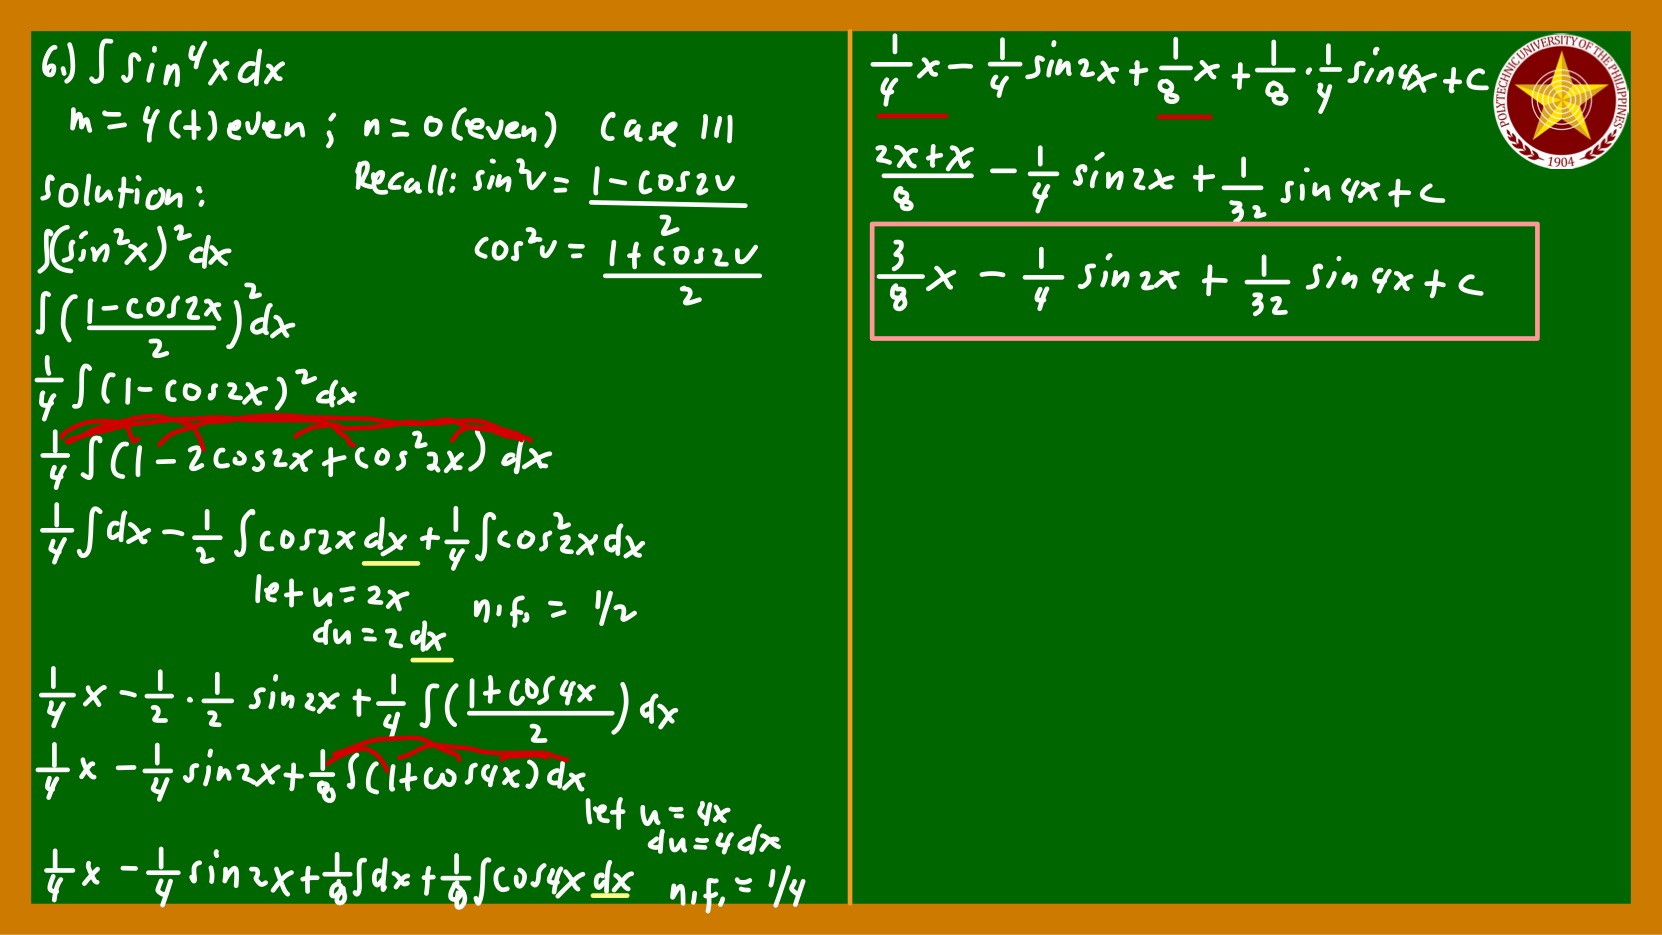 6.) ∫ sin⁴x dx
m = 4 (+) even ; n = 0 (even) Case III
solution:
Recall: sin²v = (1 - cos2v)/2
cos²v = (1 + cos2v)/2
∫(sin²x)²dx
∫((1 - cos2x)/2)²dx
1/4 ∫(1 - cos2x)²dx
1/4 ∫(1 - 2cos2x + cos²2x) dx
1/4 ∫dx - 1/2 ∫cos2x dx + 1/4 ∫cos²2x dx
let u = 2x
du = 2 dx
n.f. = 1/2
1/4 x - 1/2 · 1/2 sin2x + 1/4 ∫((1 + cos4x)/2) dx
1/4 x - 1/4 sin2x + 1/8 ∫(1 + cos4x) dx
let u = 4x
du = 4dx
1/4 x - 1/4 sin2x + 1/8 ∫dx + 1/8 ∫cos4x dx n.f. = 1/4
1/4 x - 1/4 sin2x + 1/8 x + 1/8 · 1/4 sin4x + C
(2x + x)/8 - 1/4 sin2x + 1/32 sin4x + C
3/8 x - 1/4 sin2x + 1/32 sin4x + C
POLYTECHNIC UNIVERSITY OF THE PHILIPPINES
1904